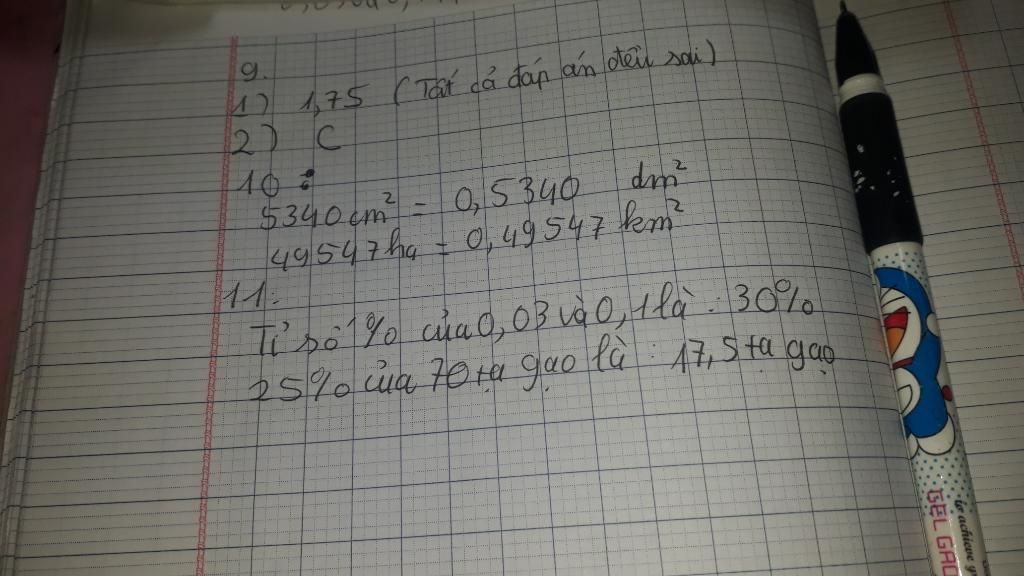 9.
1) 1,75 (Tất cả đáp án đều sai)
2) C
10:
5340cm² = 0,5340 dm²
49547ha = 0,49547 km²
11:
Tỉ số % của 0,03 và 0,1 là: 30%
25% của 70 tạ gạo là: 17,5 tạ gạo
GEL